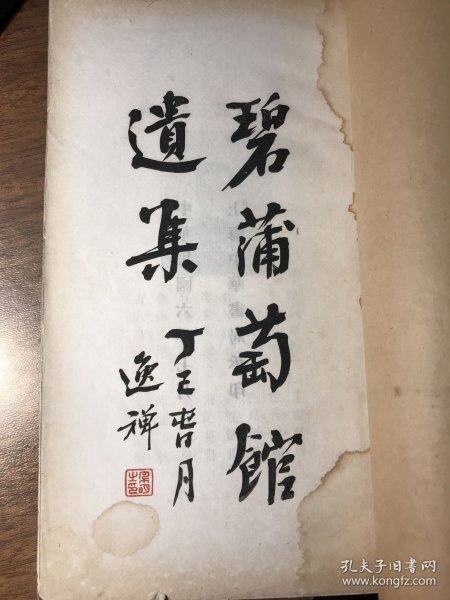 碧蒲萄館
遺集
丁巳
月
逸禅
孔夫子旧书网
www.kongfz.com